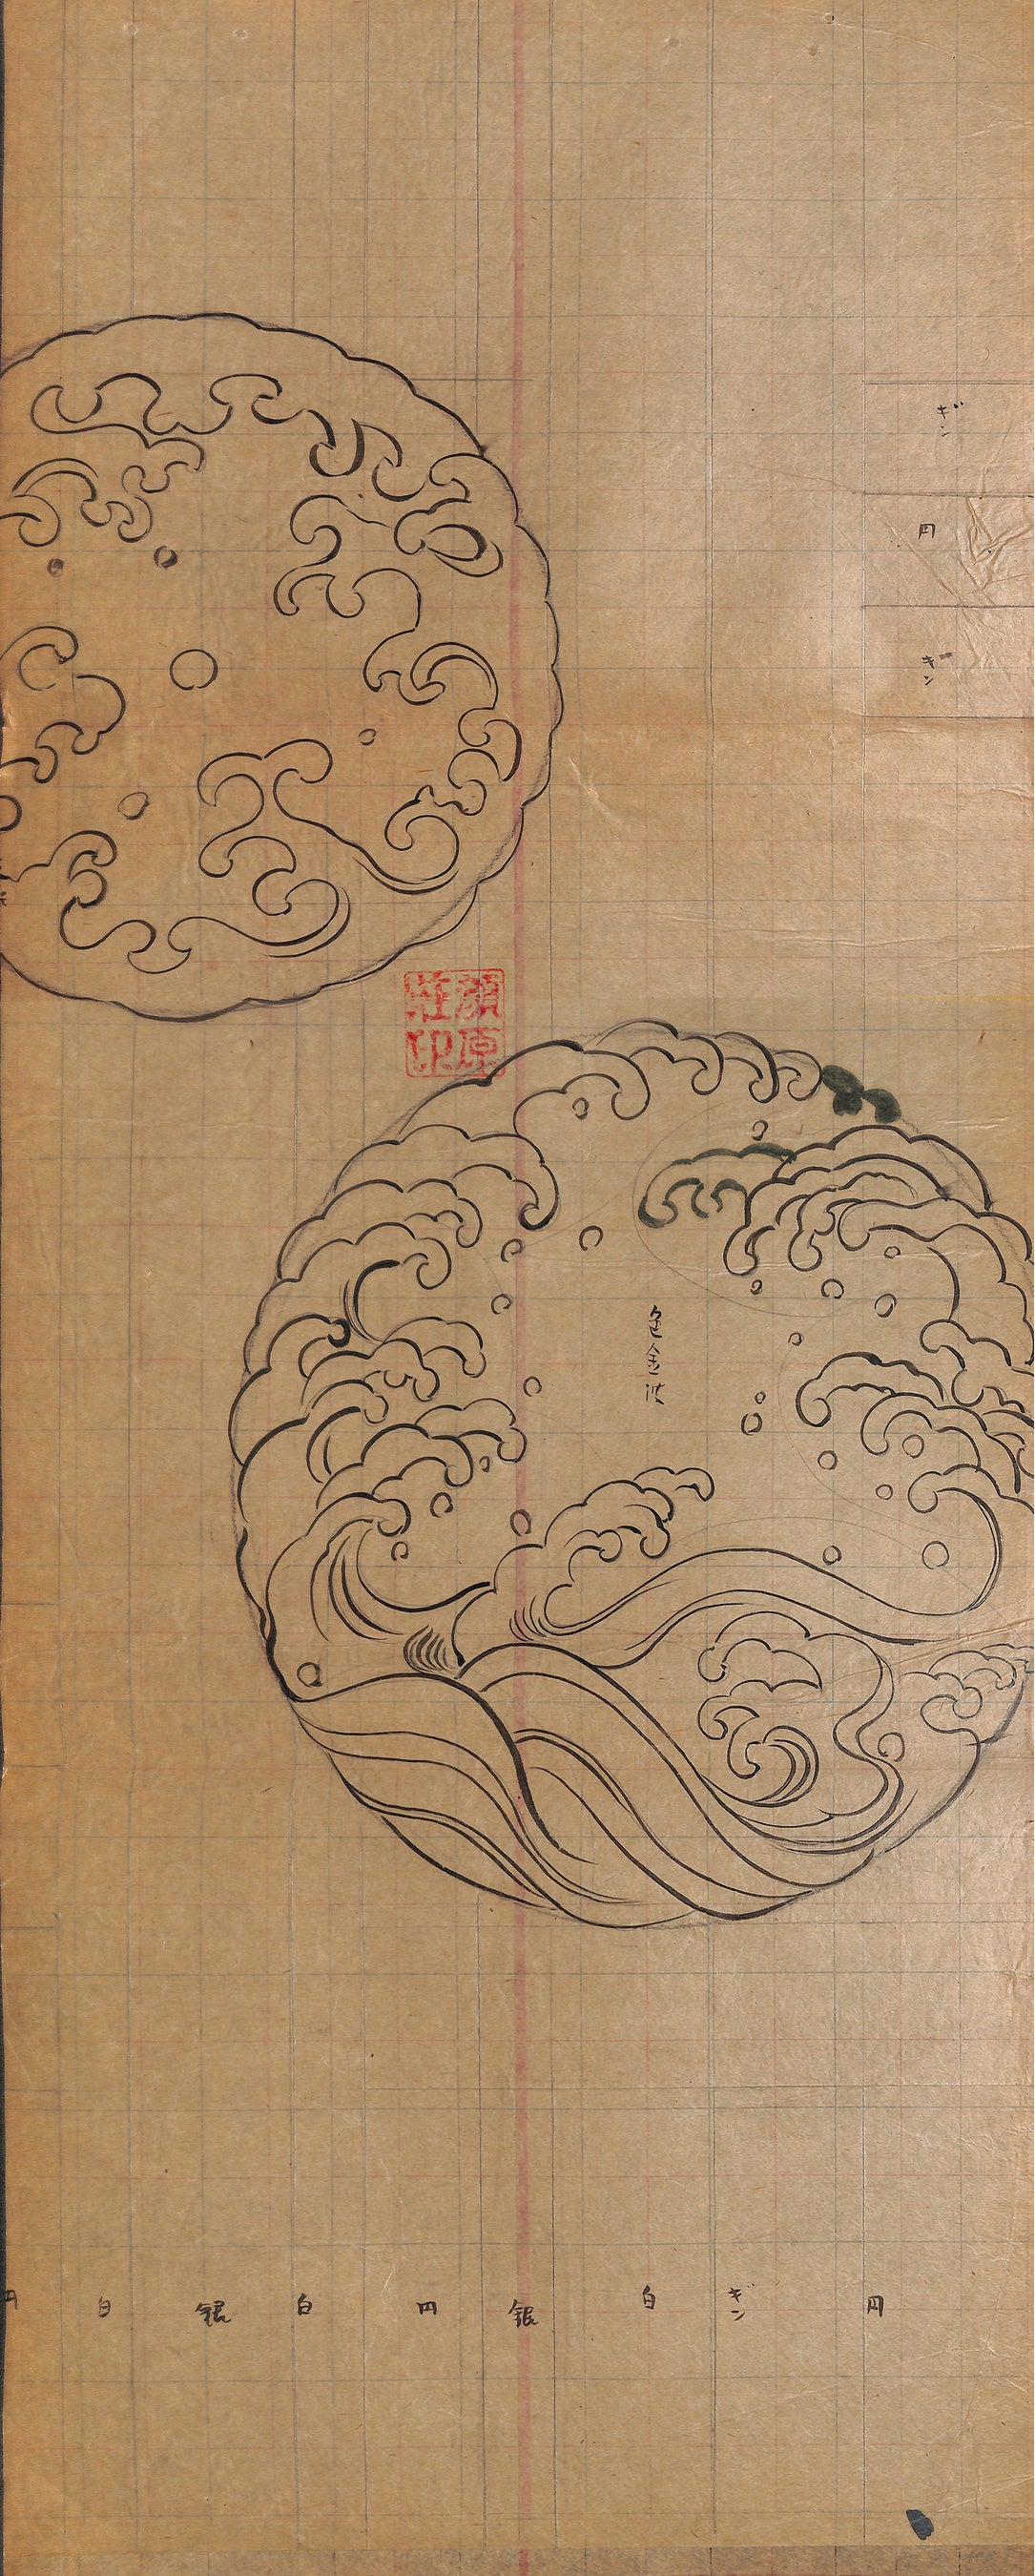 ギン
円
ギン
顔原
荘印
色金波
円 白 銀 白 円 銀 白 ギン 円